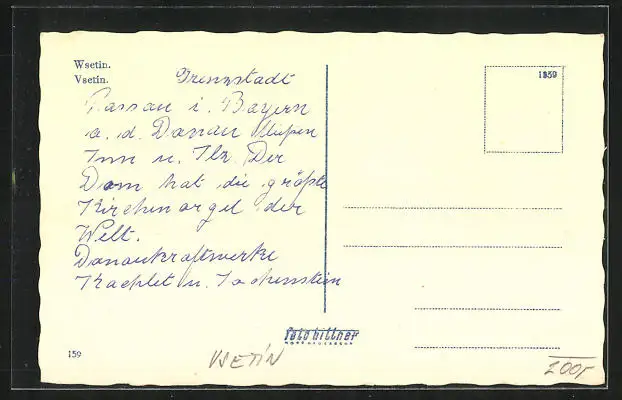 Wsetin.
Vsetín.
1359
Grenzstadt
Passau i. Bayern
a. d. Donau
Inn u. Ilz. Der
Dom hat die größte
Kirchenorgel der
Welt.
Donaukraftwerke
Kachlet u. Jochenstein
foto bittner
159
VSETÍN